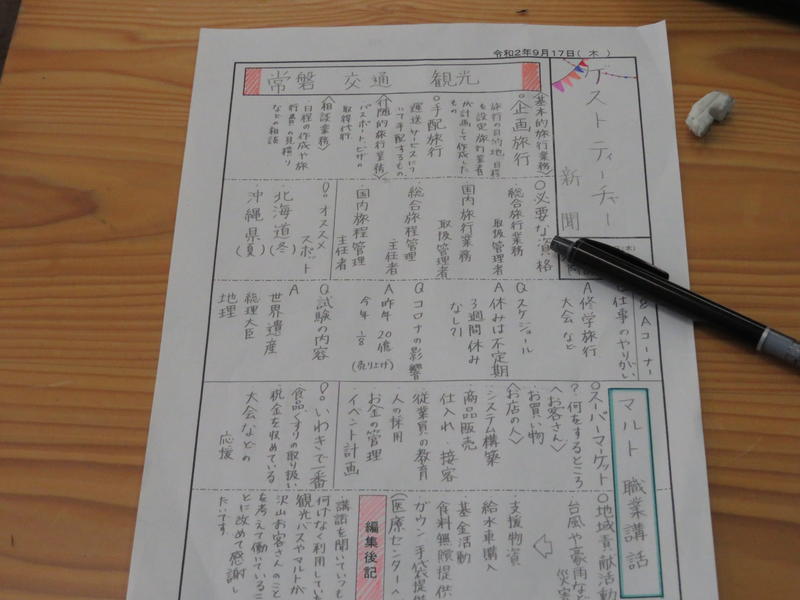 令和2年9月17日(木)
ゲストティーチャー
新聞
常磐 交通 観光
〈基本的旅行業務〉
○企画旅行
旅行の目的地、日程
を設定旅行業者
が計画して作成した
もの
○手配旅行
運送サービスにつ
いて手配するもの
〈付随的旅行業務〉
パスポート、ビザの
取得代行
〈相談業務〉
日程の作成や旅
行費の見積り
などの相談
○必要な資格
総合旅行業務
取扱管理者
国内旅行業務
取扱管理者
総合旅程管理
主任者
国内旅程管理
主任者
○オススメ
スポット
北海道(冬)
沖縄県(夏)
Aコーナー
仕事のやりがい
A修学旅行
大会など
Qスケジュール
A休みは不定期
3週間休み
なし?!
Qコロナの影響
A昨年 20億
今年 1/8
(売り上げ)
Q試験の内容
A
世界遺産
総理大臣
地理
マルト 職業講話
○スーパーマーケット
?何をするところ
〈お客さん〉
お買い物
〈お店の人〉
システム構築
商品販売
仕入れ 接客
従業員の教育
人の採用
お金の管理
イベント計画
○いわきで一番
食品くすりの取り扱い
税金を収めている
大会などの
応援
○地域貢献活動
台風や豪雨な
災害
支援物資
給水車購入
基金活動
食料無償提供
ガウン手袋提供
(医療センターへ
編集後記
講話を聞いていつも
何げなく利用してい
観光バスやマルトが
沢山お客さんのこと
を考えて働いているこ
とに改めて感謝し
たいです